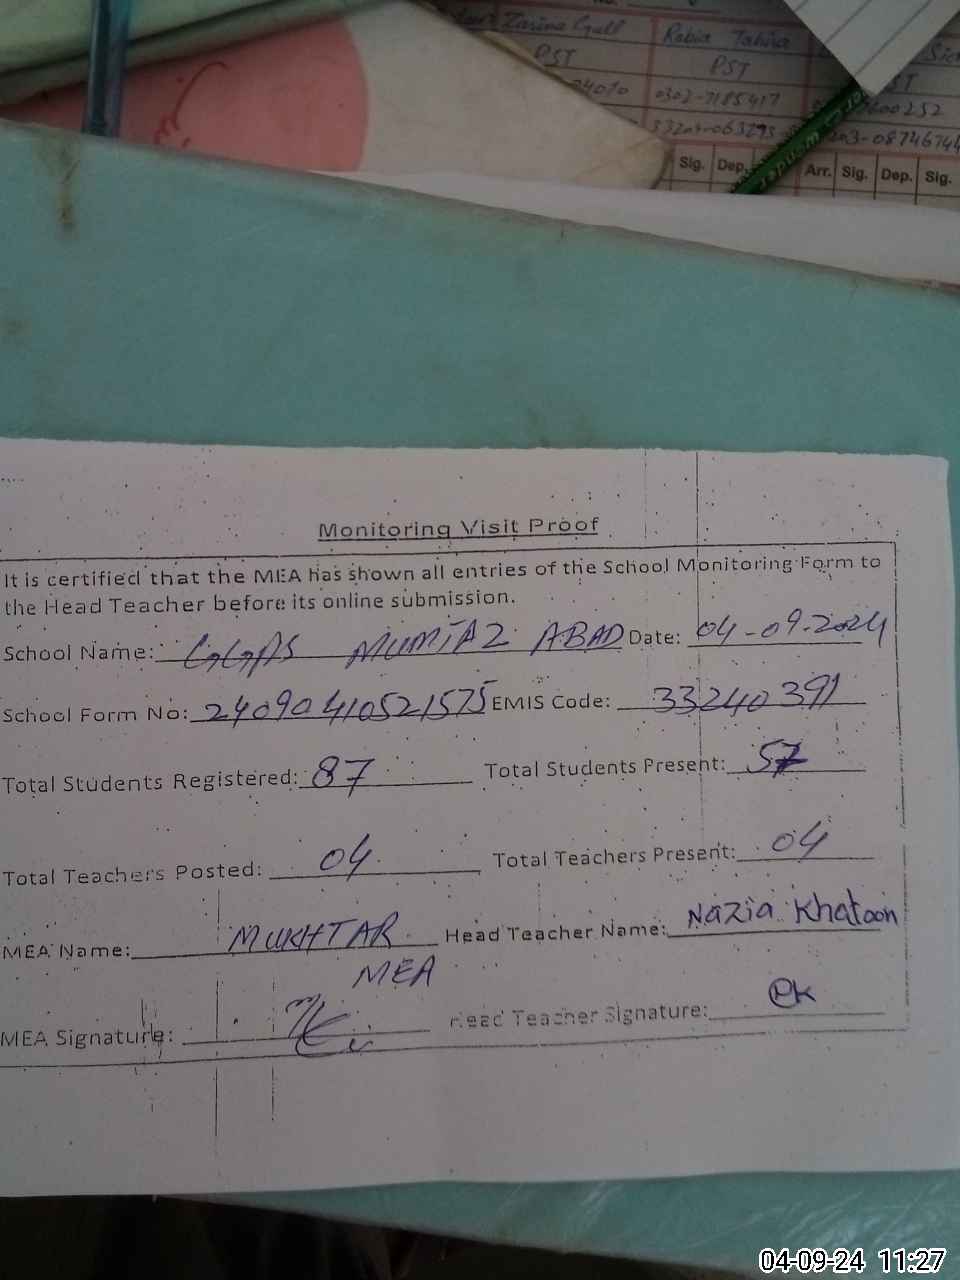 Zarina Gull Rabia Tahira
PST PST
0302-7185417
Sig. Dep. Arr. Sig. Dep. Sig.
Monitoring Visit Proof
It is certified that the MEA has shown all entries of the School Monitoring Form to
the Head Teacher before its online submission.
School Name: GGPS MUMTAZ ABAD Date: 04-09-2024
School Form No: 24090410521575 EMIS Code: 33240391
Total Students Registered: 87 Total Students Present: 57
Total Teachers Posted: 04 Total Teachers Present: 04
MEA Name: MUKHTAR Head Teacher Name: Nazia Khatoon
MEA
MEA Signature: Head Teacher Signature:
04-09-24 11:27